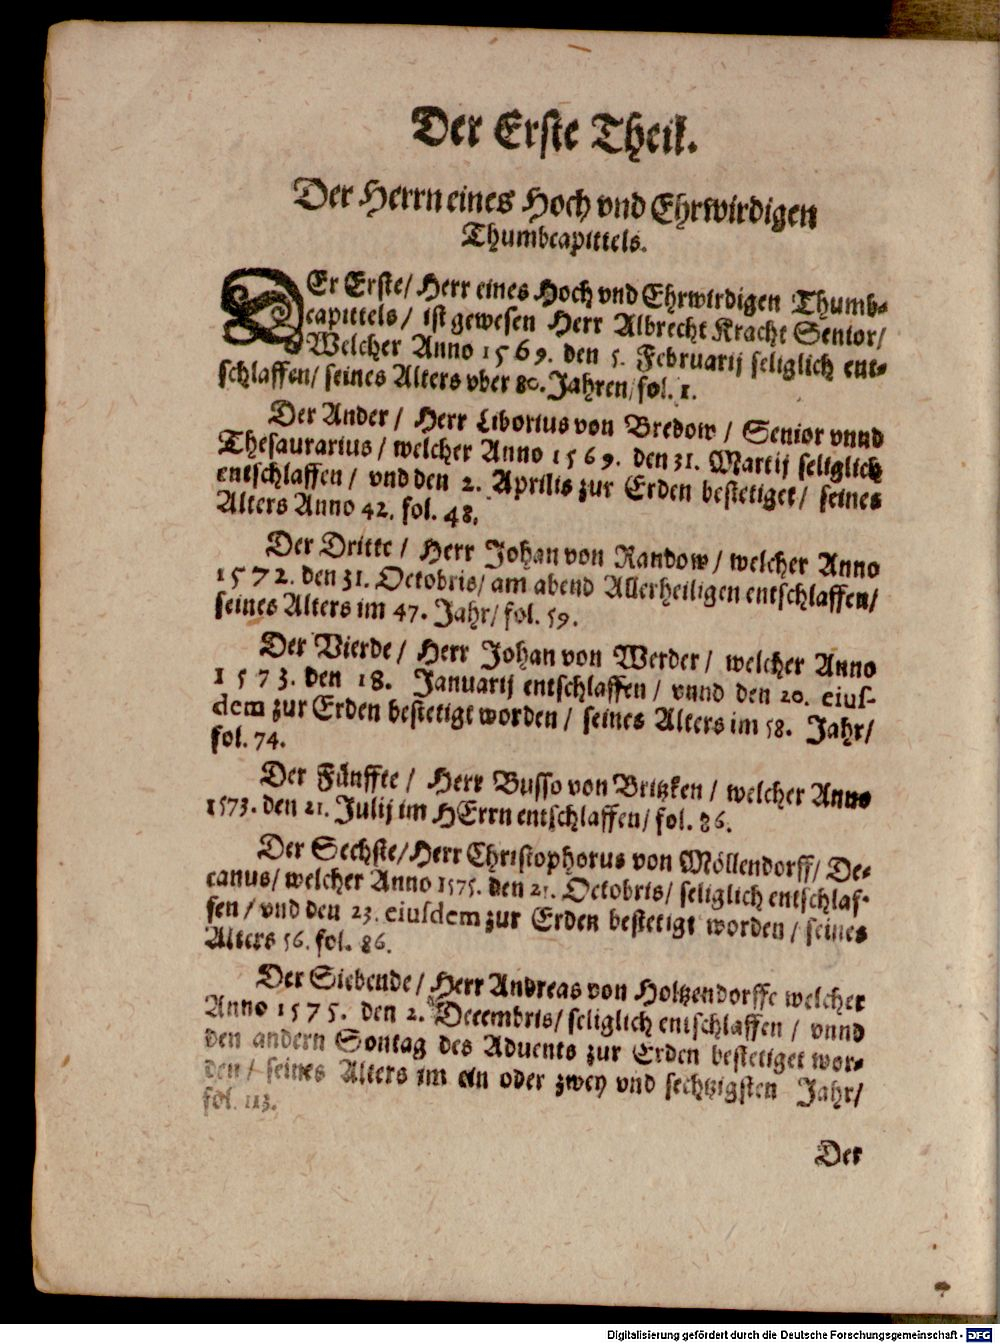 Der Erste Theil.
Der Herrn eines Hoch vnd Ehrwirdigen
Thumbcapittels.
DEr Erste/ Herr eines Hoch vnd Ehrwirdigen Thumb-
capittels/ ist gewesen Herr Albrecht Kracht Senior/
Welcher Anno 1569. den 5. Februarij seliglich ent-
schlaffen/ seines Alters vber 80. Jahren/ fol. 1.
Der Ander/ Herr Liborius von Bredow/ Senior vnnd
Thesaurarius/ welcher Anno 1569. den 31. Martij seliglich
entschlaffen/ vnd den 2. Aprilis zur Erden bestetiget/ seines
Alters Anno 42. fol. 48.
Der Dritte/ Herr Johan von Randow/ welcher Anno
1572. den 31. Octobris/ am abend Allerheiligen entschlaffen/
seines Alters im 47. Jahr/ fol. 59.
Der Vierde/ Herr Johan von Werder/ welcher Anno
1573. den 18. Januarij entschlaffen/ vnnd den 20. eius-
dem zur Erden bestetigt worden/ seines Alters im 58. Jahr/
fol. 74.
Der Fünffte/ Herr Busso von Britzken/ welcher Anno
1573. den 21. Julij im HErrn entschlaffen/ fol. 86.
Der Sechste/ Herr Christophorus von Möllendorff/ De-
canus/ welcher Anno 1575. den 21. Octobris/ seliglich entschlaf-
fen/ vnd den 23. eiusdem zur Erden bestetigt worden/ seines
Alters 56. fol. 86.
Der Siebende/ Herr Andreas von Holtzendorffe welcher
Anno 1575. den 2. Decembris/ seliglich entschlaffen/ vnnd
den andern Sontag des Aduents zur Erden bestetiget wor-
den/ seines Alters im ein oder zwey vnd sechtzigsten Jahr/
fol. 113.
Der
Digitalisierung gefördert durch die Deutsche Forschungsgemeinschaft - DFG